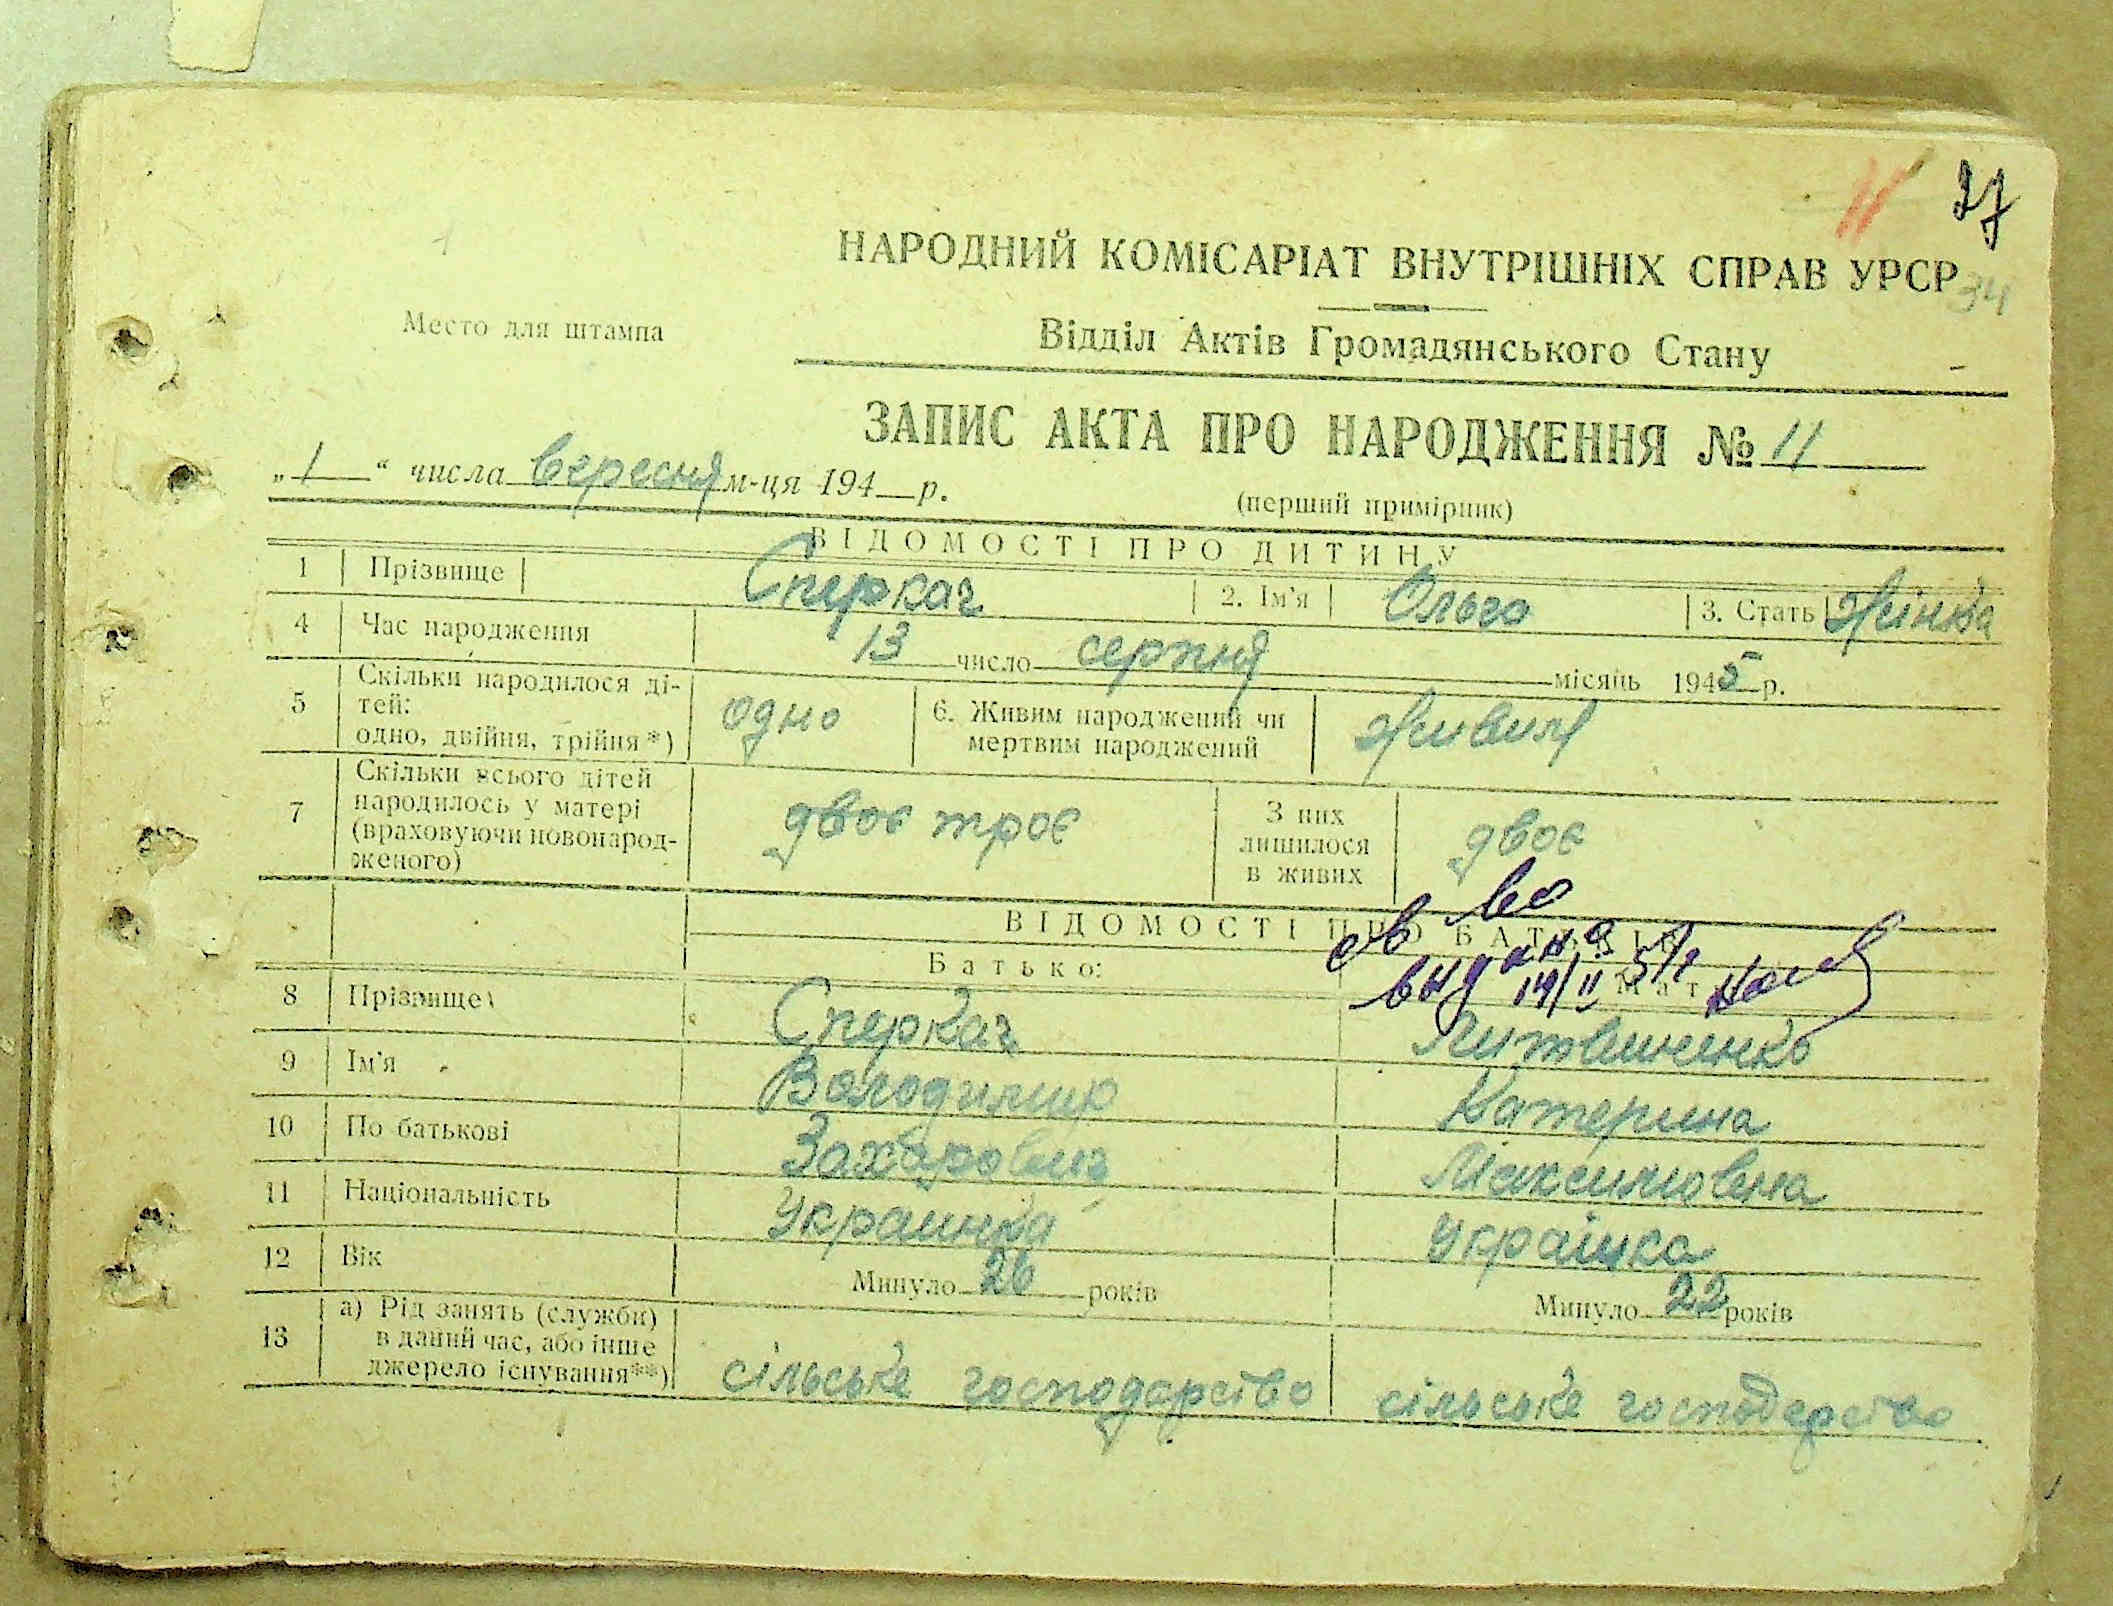 27
НАРОДНИЙ КОМІСАРІАТ ВНУТРІШНІХ СПРАВ УРСР
34
Место для штампа
Відділ Актів Громадянського Стану
ЗАПИС АКТА ПРО НАРОДЖЕННЯ № 11
„1“ числа вересня м-ця 194 р.
(перший примірник)
ВІДОМОСТІ ПРО ДИТИНУ
1 Прізвище Сперкач 2. Ім'я Ольга 3. Стать жінка
4 Час народження 13 число серпня місяць 1945 р.
5 Скільки народилося ді-
тей:
одно, двійня, трійня*) одно 6. Живим народжений чи
мертвим народжений живим
7 Скільки всього дітей
народилось у матері
(враховуючи новонарод-
женого) двоє троє З них
лишилося
в живих двоє
ВІДОМОСТІ ПРО БАТЬКІВ
Батько:
св во
видано 14/II 51
8 Прізвище Сперкач Литвиненко
9 Ім'я Володимир Катерина
10 По батькові Захарович Максимовна
11 Національність Украинка Українка
12 Вік Минуло 26 років Минуло 22 років
13 а) Рід занять (служби)
в даний час, або інше
джерело існування**) сільське господарство сільське господарство